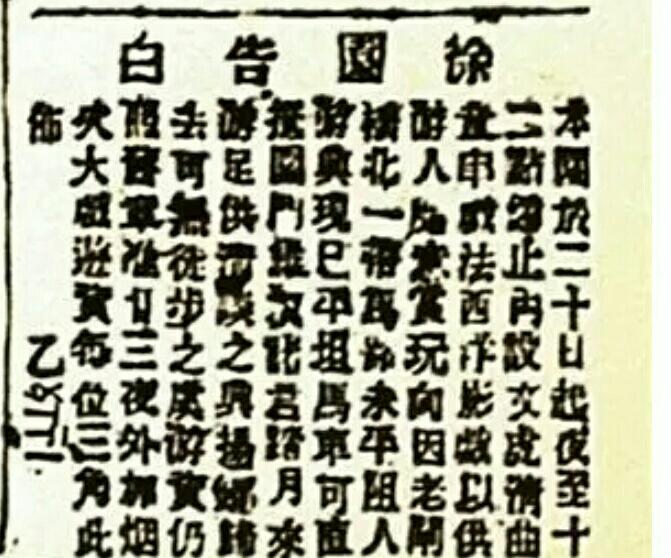 徐園告白
本園於二十日起夜至十
二點鐘止內設文虎清曲
童串戲法西洋影戲以供
游人隨意賞玩向因老閘
橋北一帶馬路未平阻人
游興現已平坦馬車可直
抵園門次君踏月來
游足供清談之興揚鞭歸
去可無徒步之虞游資仍
舊章准廿三夜外加烟
火大戲遊資每位三角此
佈 乙